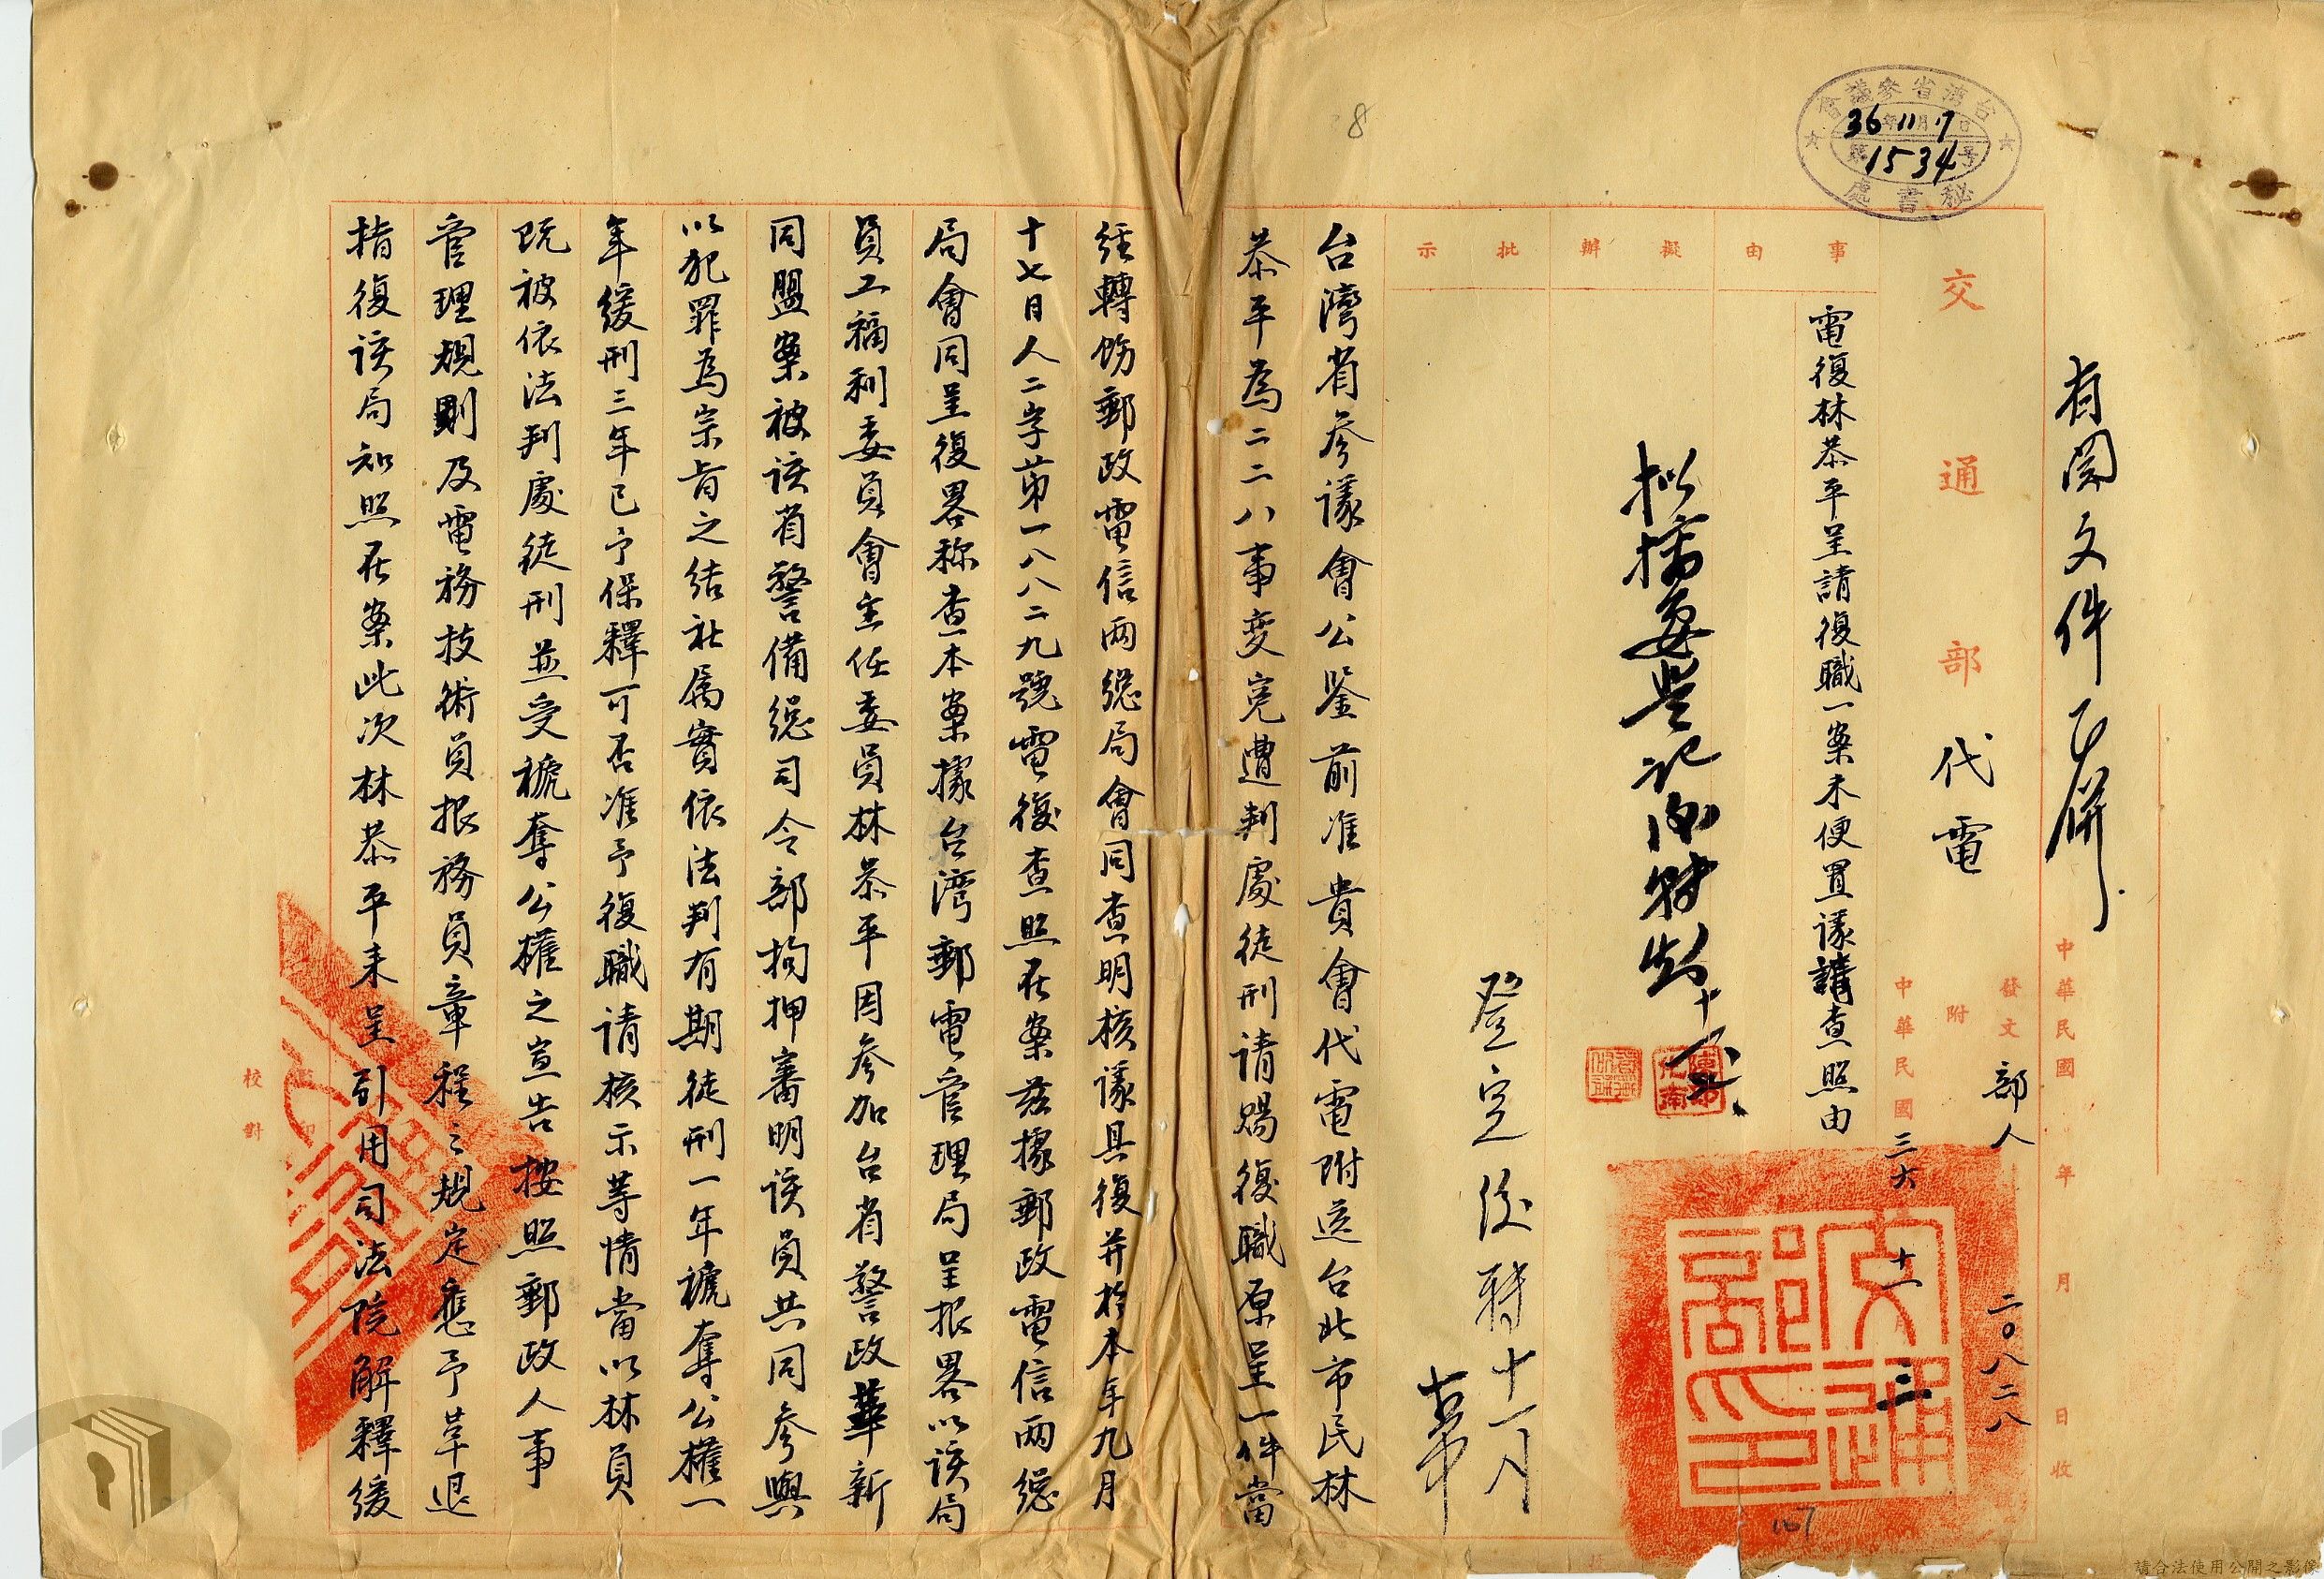 台灣省參議會
36 年 11 月 7 日
號 1534 号
秘書處
8
有関文件
中華民國 年 月 日收
發文 部人 二〇八二八
附
中華民國三六 十一月 三
交通部 代電
事由
電復林恭平呈請復職一案未便置議請查照由
擬辦
批示
登完後
十一月
台灣省參議會公鑒前准貴會代電附送台北市民林
恭平為二二八事変冤遭判處徒刑请賜復職原呈一件當
經轉飭郵政電信兩總局會同查明核議具復并於本年九月
十七日人二字第一八八二九號電復查照在案茲據郵政電信兩總
局會同呈復畧称查本案據台灣郵電管理局呈报畧以该局
員工福利委員會主任委員林恭平因參加台省警政革新
同盟案被该省警備總司令部拘押審明该員共同參與
以犯罪為宗旨之结社属實依法判有期徒刑一年褫奪公權一
年缓刑三年已予保釋可否准予復職请核示等情當以林員
既被依法判處徒刑並受褫奪公權之宣告按照郵政人事
管理規則及電務技術員报務員章程之規定應予革退
指復该局知照在案此次林恭平来呈引用司法院解釋缓
校對
交通部印
107
請合法使用公開之影像